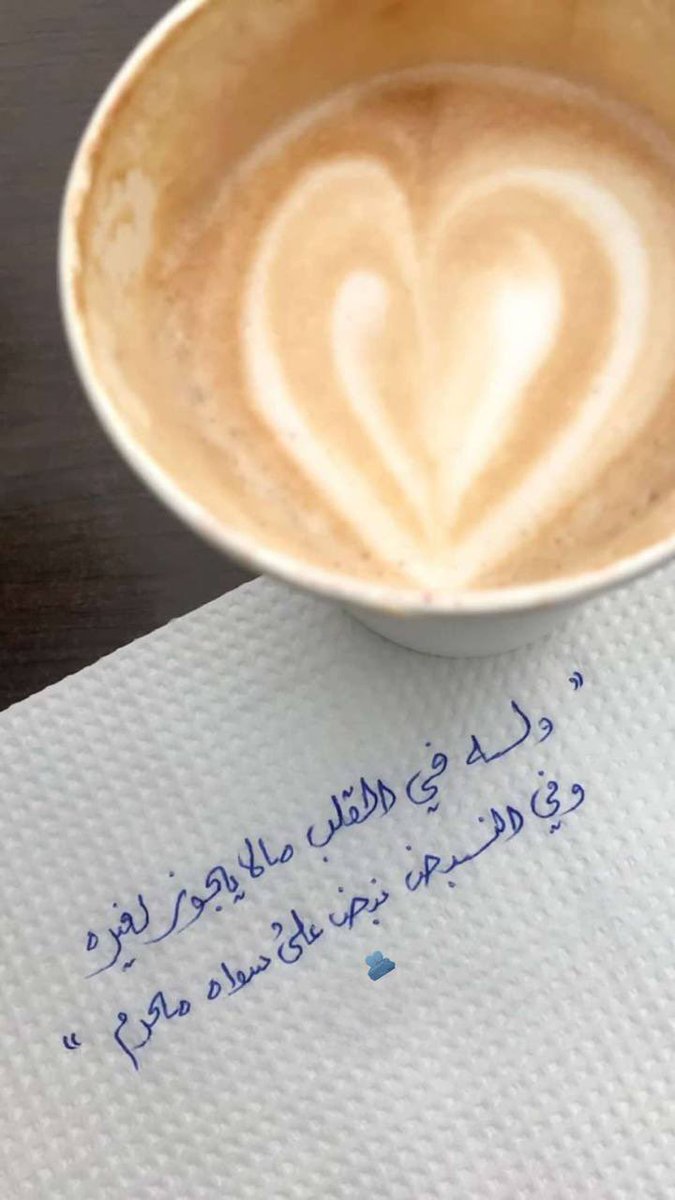 ” ولـه في القلب مالا يجوز لغيره
وفي النبض نبض على سواه محرم “